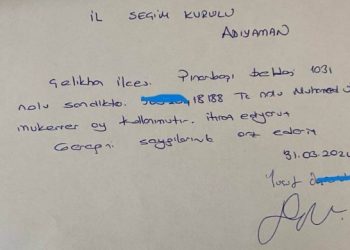 İL SEÇİM KURULU
ADIYAMAN
Çelikhan ilçesi Pınarbaşı beldesi 1031
nolu sandıkta 18188 Tc nolu Muhammed
mükerrer oy kullanmıştır. itiraz ediyorum
Gereğini saygılarımla arz ederim
31.03.202
Yusuf